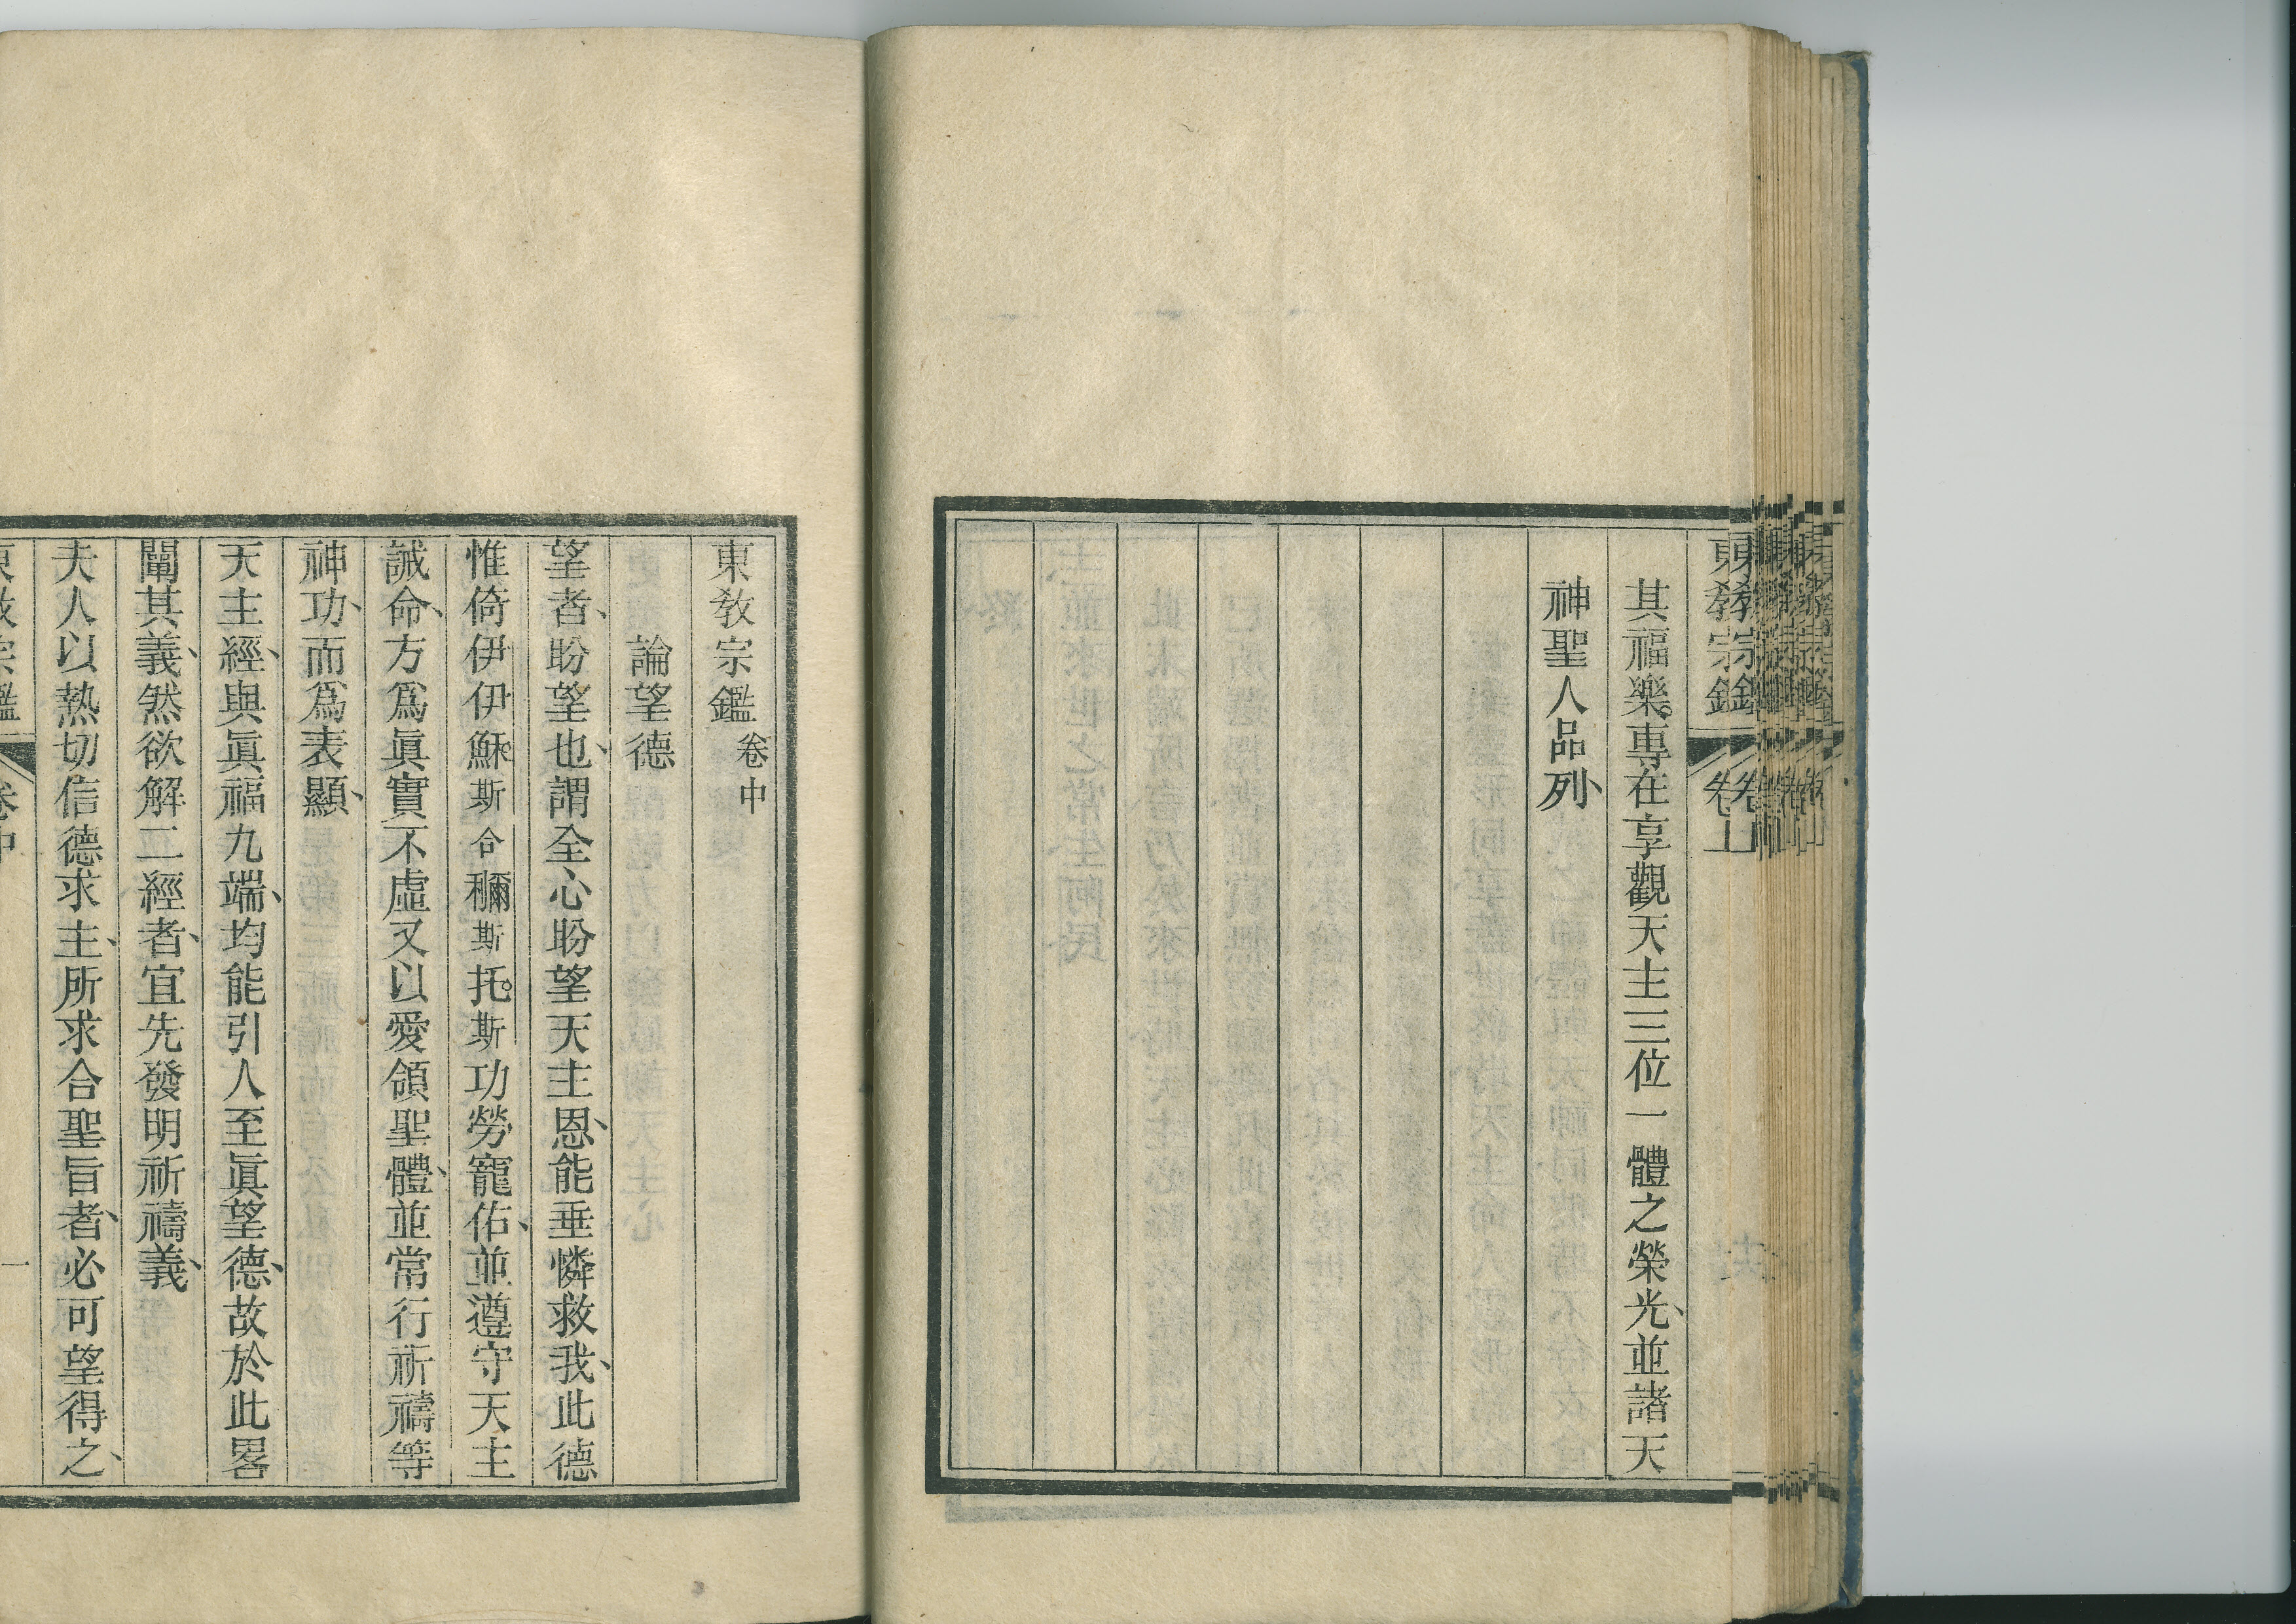 東教宗鑑 卷上
其福樂。專在享觀天主三位一體之榮光、並諸天
神聖人品列、
東教宗鑑 卷中
論望德
望者、盼望也、謂全心盼望天主恩、能垂憐救我、此德
惟倚伊伊穌斯合穪斯托斯功勞寵佑、並遵守天主
誡命、方爲眞實不虛又以愛領聖體、並常行祈禱等
神功、而爲表顯、
天主經、與眞福九端、均能引人至眞望德、故於此畧
闡其義、然欲解二經者、宜先發明祈禱義、
夫人以熱切信德求主、所求合聖旨者、必可望得之、
東教宗鑑 卷中 一